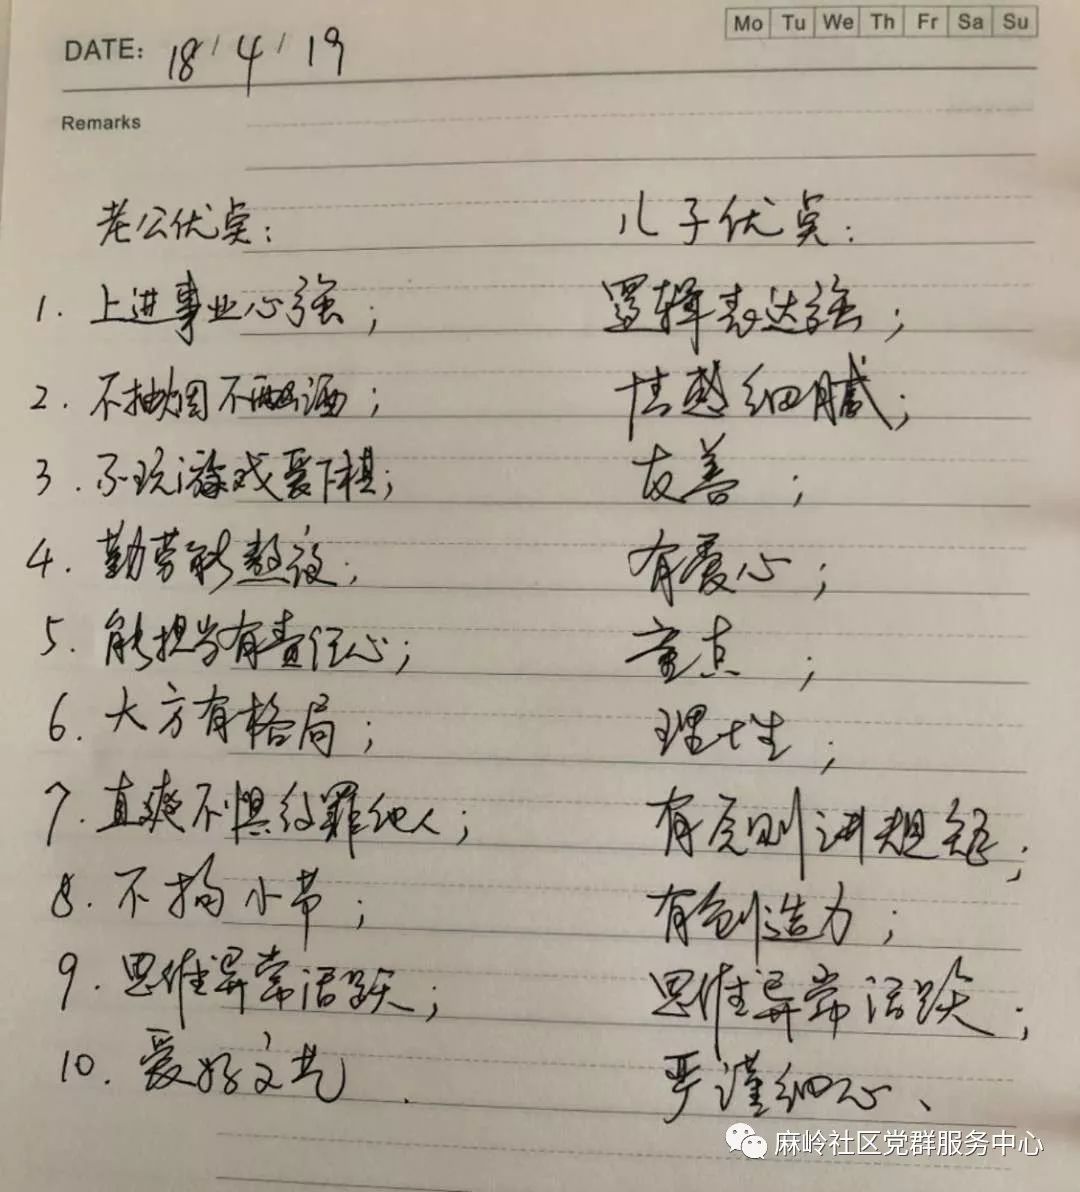 Mo Tu We Th Fr Sa Su
DATE: 18/4/19
Remarks
老公优点: 儿子优点:
1. 上进事业心强; 逻辑表达强;
2. 不抽烟不酗酒; 情感细腻;
3. 不玩游戏爱下棋; 友善;
4. 勤劳能熬夜; 有爱心;
5. 能担当有责任心; 重点;
6. 大方有格局; 理性;
7. 直爽不惧得罪他人; 有原则讲规矩;
8. 不拘小节; 有创造力;
9. 思维异常活跃; 思维异常活跃;
10. 爱好文艺. 严谨细心、
麻岭社区党群服务中心